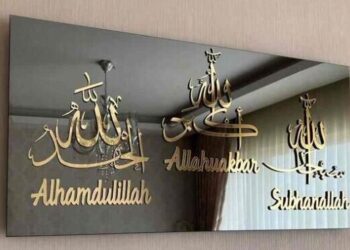 الحمد لله
Alhamdulillah
الله أكبر
Allahuakbar
سبحان الله
Subhanallah